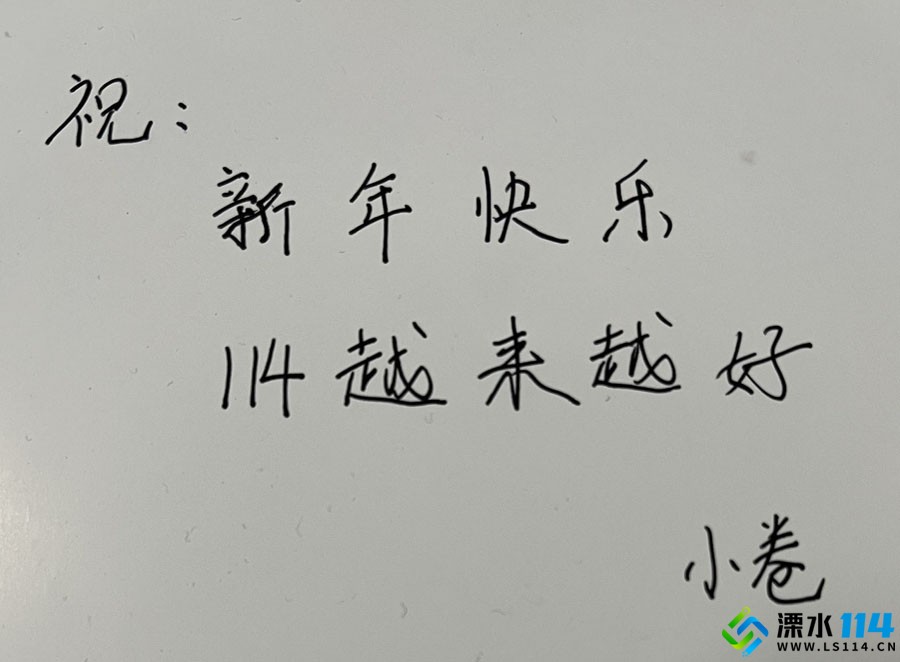 祝：
新年快乐
114越来越好
小卷
溧水114
WWW.LS114.CN